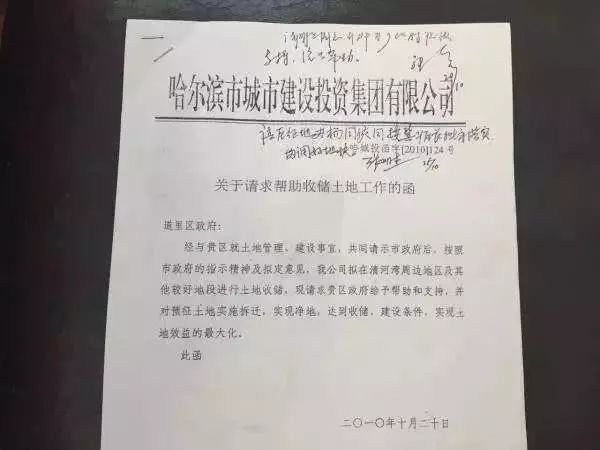 哈尔滨市城市建设投资集团有限公司
[2010]124号
关于请求帮助收储土地工作的函
道里区政府:
经与贵区就土地管理、建设事宜，共同请示市政府后，按照
市政府的指示精神及拟定意见，我公司拟在清河湾周边地区及其
他较好地段进行土地收储，现请求贵区政府给予帮助和支持，并
对预征土地实施拆迁，实现净地，达到收储、建设条件，实现土
地效益的最大化。
此函
二〇一〇年十月二十日